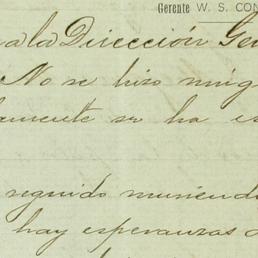 Gerente W. S. CON
a la Dirección Gen
No se hizo ning
amente se ha es
seguido muriendo
hay esperanzas d